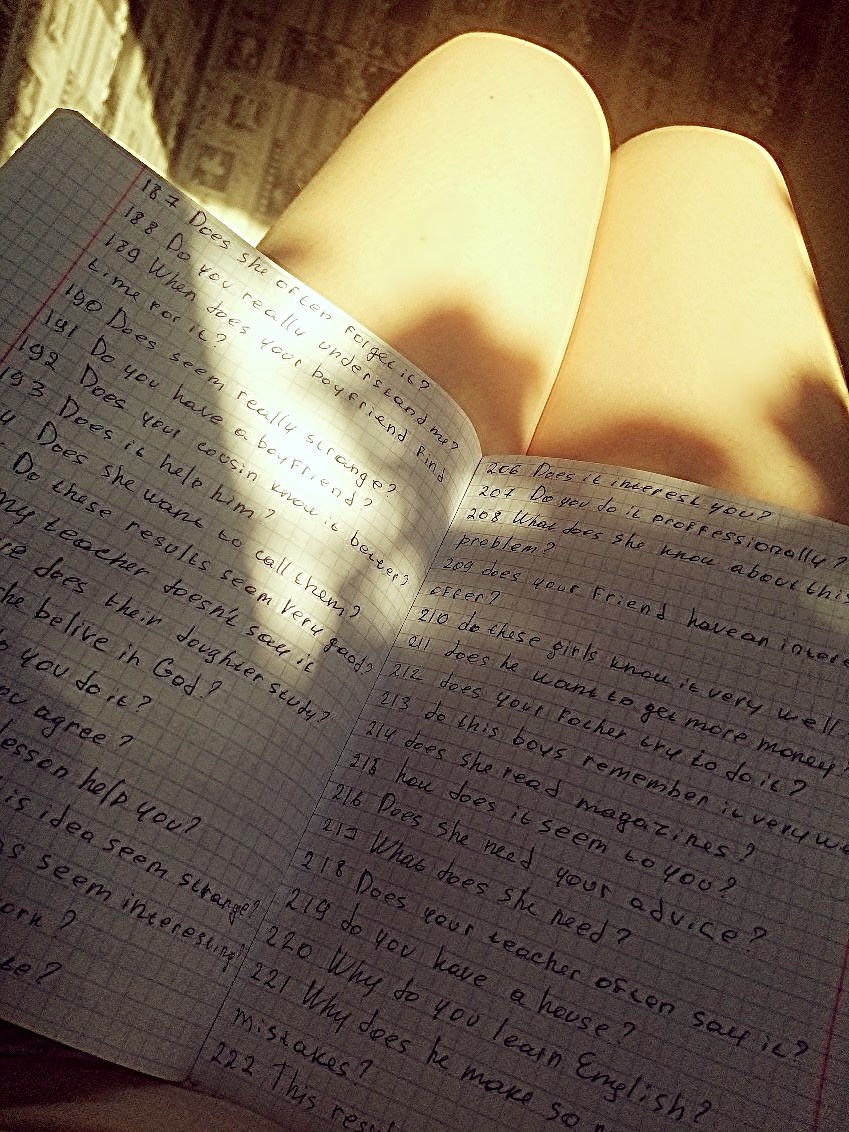 187 Does she often forget it?
188 Do you really understand me?
189 When does your boyfriend find
time for it?
190 Does seem really strange?
191 Do you have a boyfriend?
192 Does your cousin know it better?
193 Does it help him?
Does she want to call them?
Do these results seem very good?
My teacher doesn't say it
does their doughter study?
he belive in God?
you do it?
agree?
lesson help you?
is idea seem strange?
seem interesting?
206 Does it interest you?
207 Do you do it proffessionally?
208 What does she know about this
problem?
209 does your friend have an
offer?
210 do these girls know it very well
211 does he want to get more money?
212 does your father try to do it?
213 do this boys remember it very
214 does she read magazines?
215 how does it seem to you?
216 Does she need your advice?
217 What does she need?
218 Does your teacher often say it?
219 do you have a house?
220 Why do you learn English?
221 Why does he make so
mistakes?
222 This